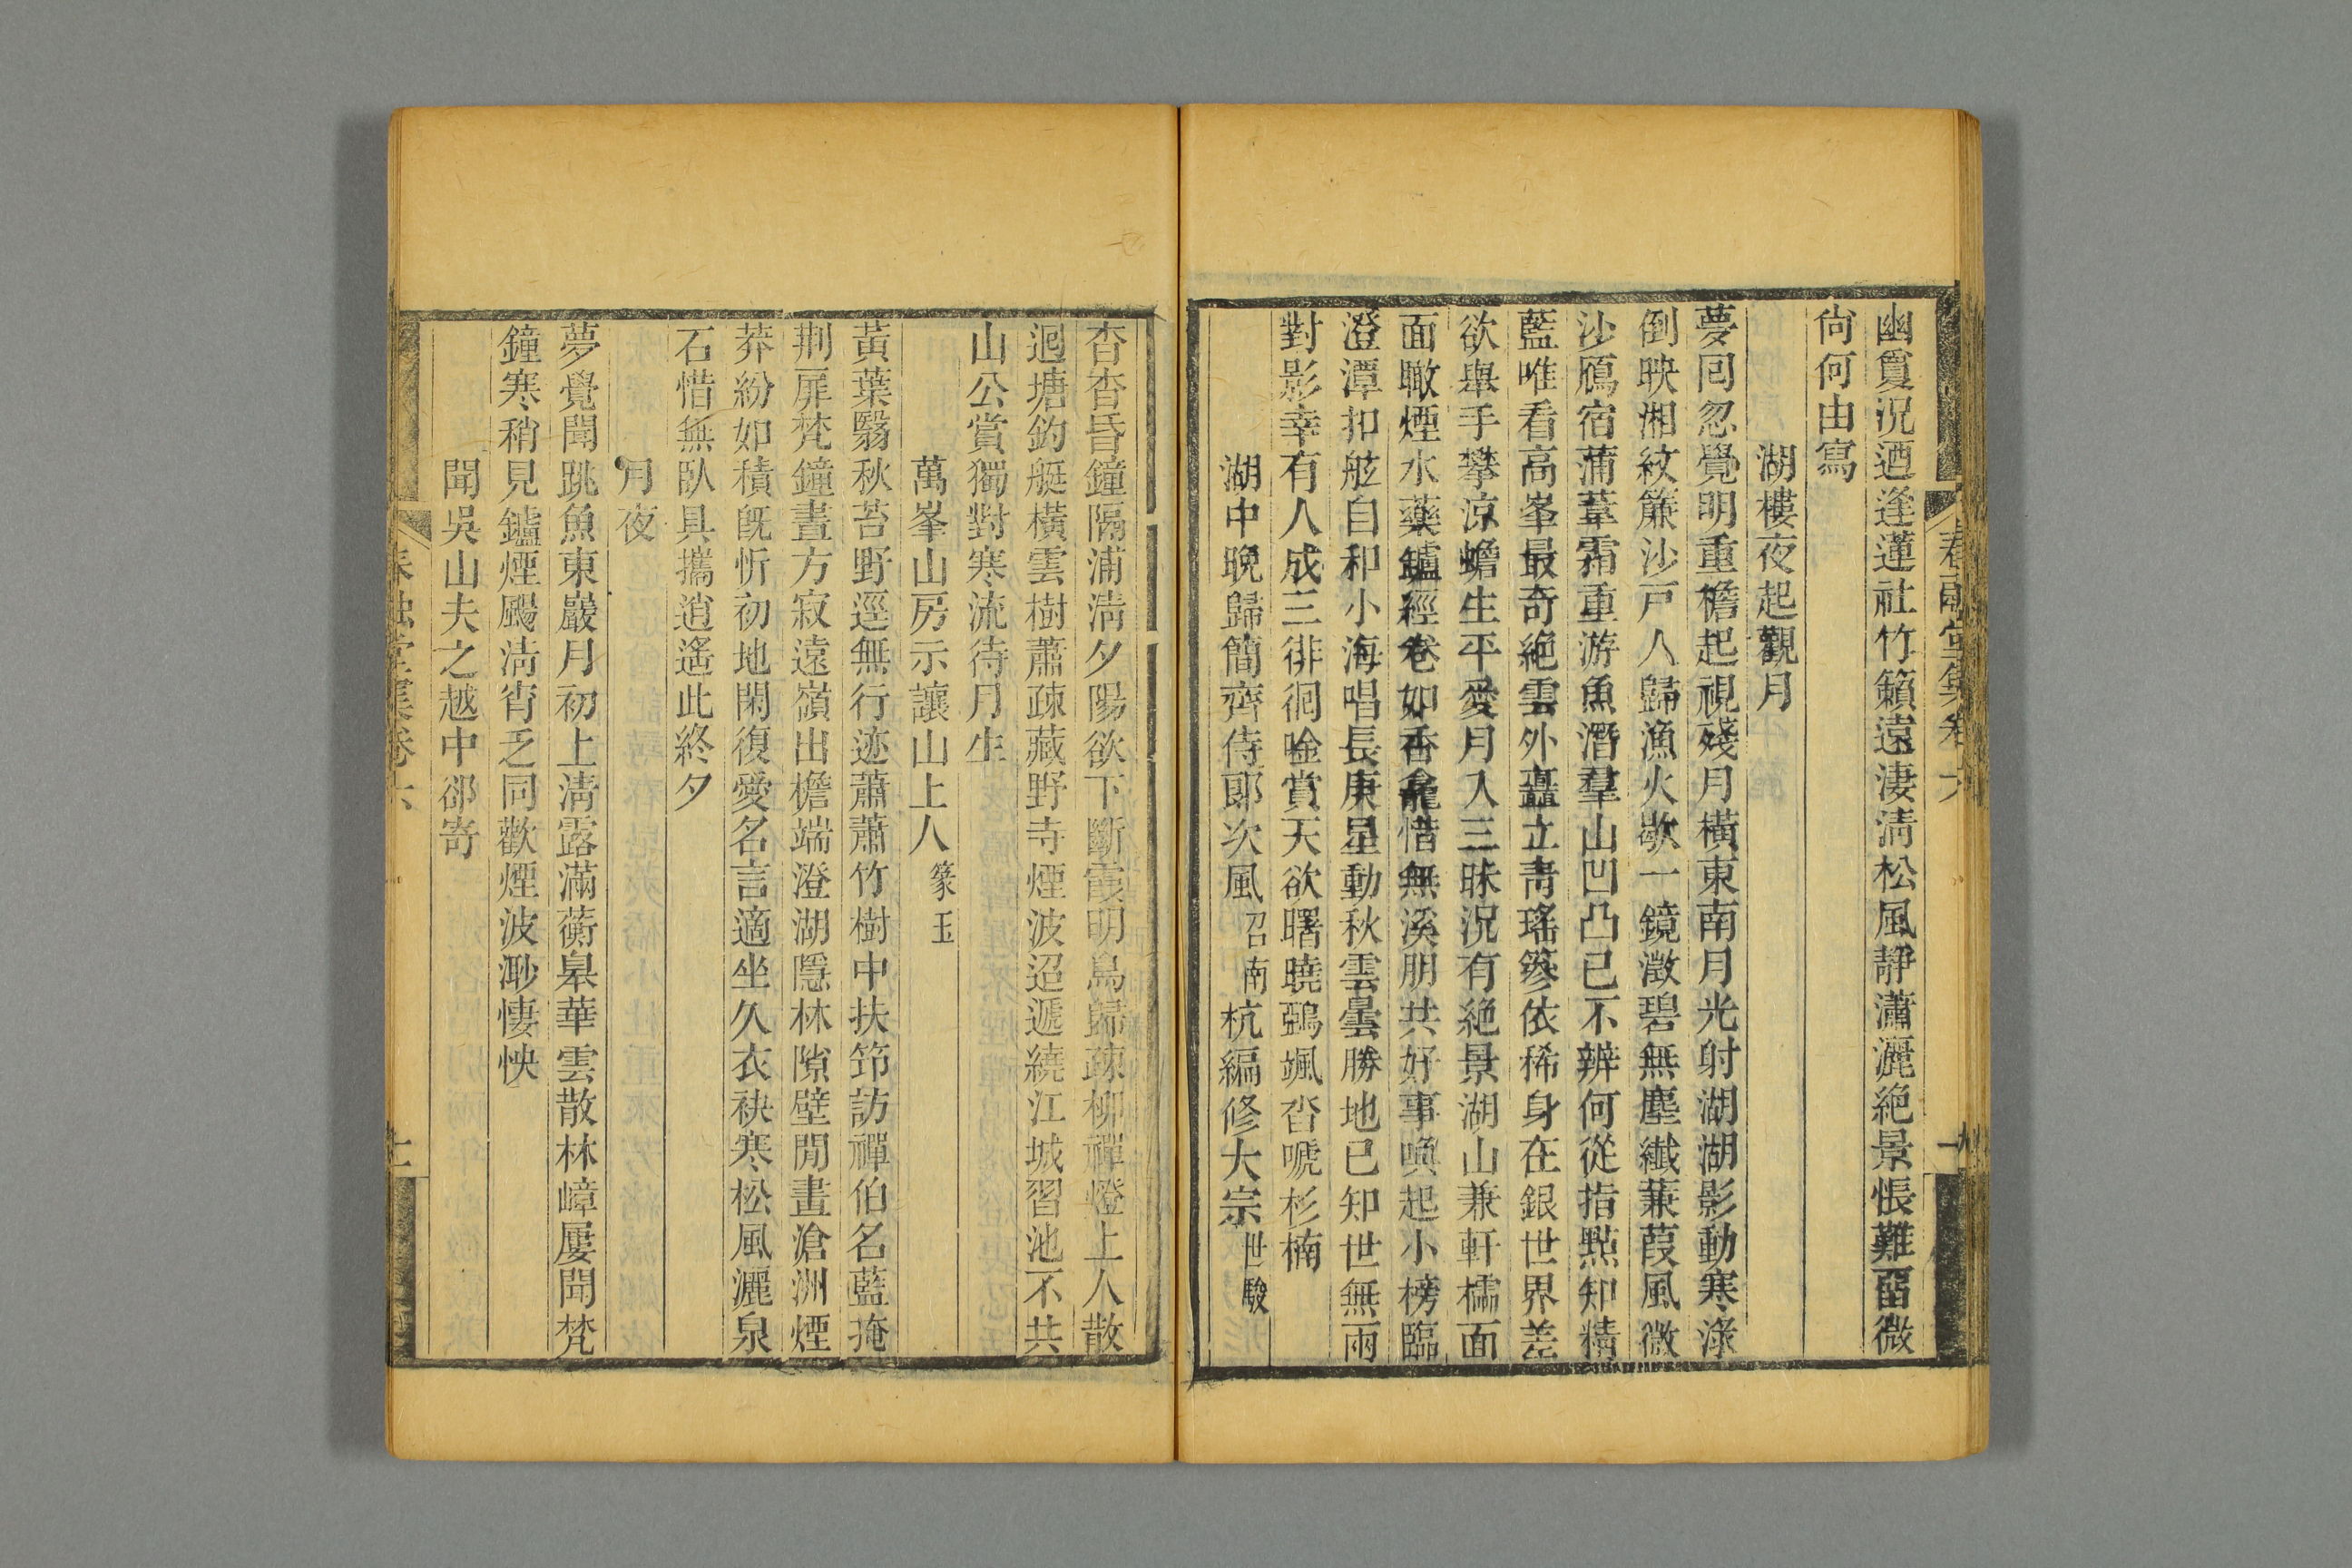 幽夐況迺逢蓮社竹籟遠淒淸松風靜瀟灑絕景悵難畱微
尙何由寫
湖樓夜起觀月
夢囘忽覺明重檐起視殘月橫東南月光射湖湖影動寒淥
倒映湘紋簾沙戸人歸漁火歇一鏡澂碧無塵纖蒹葭風微
沙鴈宿蒲葦霜重游魚潛羣山凹凸已不辨何從指點知精
藍唯看高峯最奇絕雲外矗立靑瑤篸依稀身在銀世界差
欲舉手攀涼蟾生平愛月入三昧況有絕景湖山兼軒櫺面
面瞰煙水藥鑪經卷如香龕惜無溪朋共好事喚起小榜臨
澄潭扣舷自和小海唱長庚星動秋雲曇勝地已知世無兩
對影幸有人成三徘徊唫賞天欲曙曉鵶颯沓嗁杉楠
湖中晚歸簡齊侍郎次風召南杭編修大宗世駿
杳杳昏鐘隔浦淸夕陽欲下斷霞明鳥歸疎柳禪燈上人散
迴塘釣艇橫雲樹蕭疎藏野寺煙波迢遞繞江城習池不共
山公賞獨對寒流待月生
萬峯山房示讓山上人篆玉
黃葉翳秋苔野逕無行迹蕭蕭竹樹中扶筇訪禪伯名藍掩
荆扉梵鐘晝方寂遠嶺出檐端澄湖隱林隙壁閒畫滄洲煙
莽紛如積旣忻初地閑復愛名言適坐久衣袂寒松風灑泉
石惜無臥具攜逍遙此終夕
月夜
夢覺聞跳魚東巖月初上淸露滿蘅皋華雲散林嶂屢聞梵
鐘寒稍見鑪煙颺淸宵乏同歡煙波渺悽怏
聞吳山夫之越中卻寄